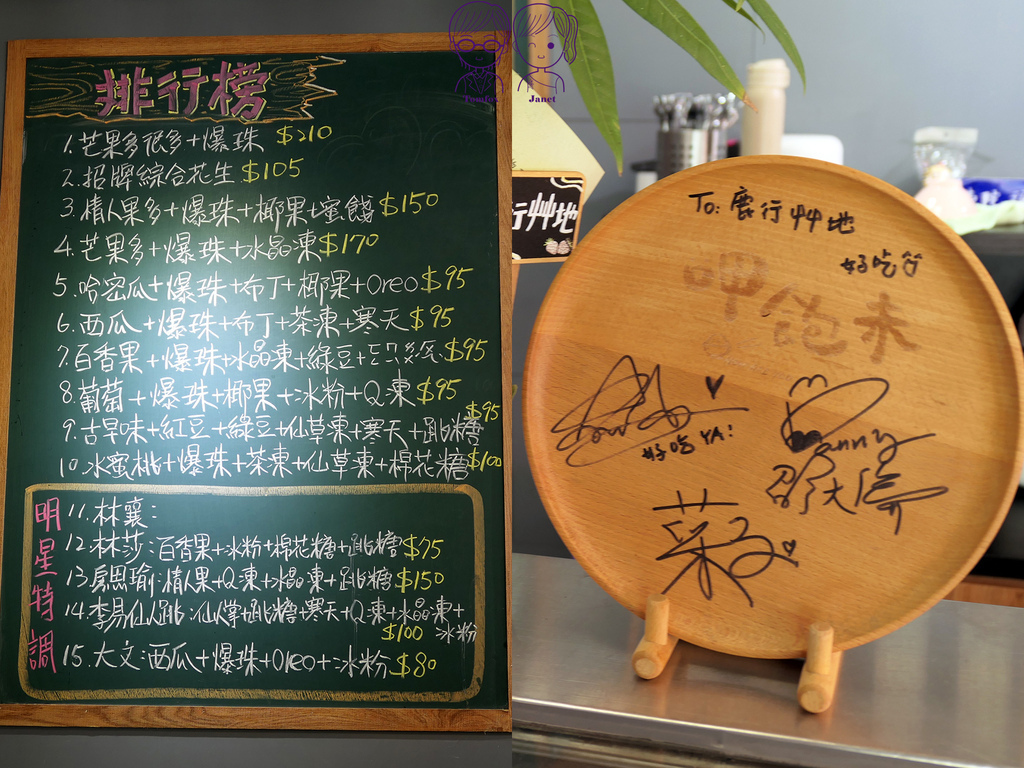 排行榜
1.芒果多很多+爆珠 $210
2.招牌綜合花生 $105
3.情人果多+爆珠+椰果+蜜餞 $150
4.芒果多+爆珠+水晶凍 $170
5.哈密瓜+爆珠+布丁+椰果+Oreo $95
6.西瓜+爆珠+布丁+茶凍+寒天 $95
7.百香果+爆珠+水晶凍+綠豆+ $95
8.葡萄+爆珠+椰果+冰粉+Q凍 $95
9.古早味+紅豆+綠豆+仙草凍+寒天+跳糖 $95
10.水蜜桃+爆珠+茶凍+仙草凍+棉花糖 $100
明星特調
11.林襄:
12.林莎:百香果+冰粉+棉花糖+跳糖 $75
13.房思瑜:情人果+Q凍+水晶凍+跳糖 $150
14.李易仙人跳:仙人掌+跳糖+寒天+Q凍+水晶凍+
冰粉 $100
15.大文:西瓜+爆珠+Oreo+冰粉 $80
Janet
行艸地
To:鹿行艸地
好吃
呷飽未
好吃 YA!
Danny
邵大倫
菜子